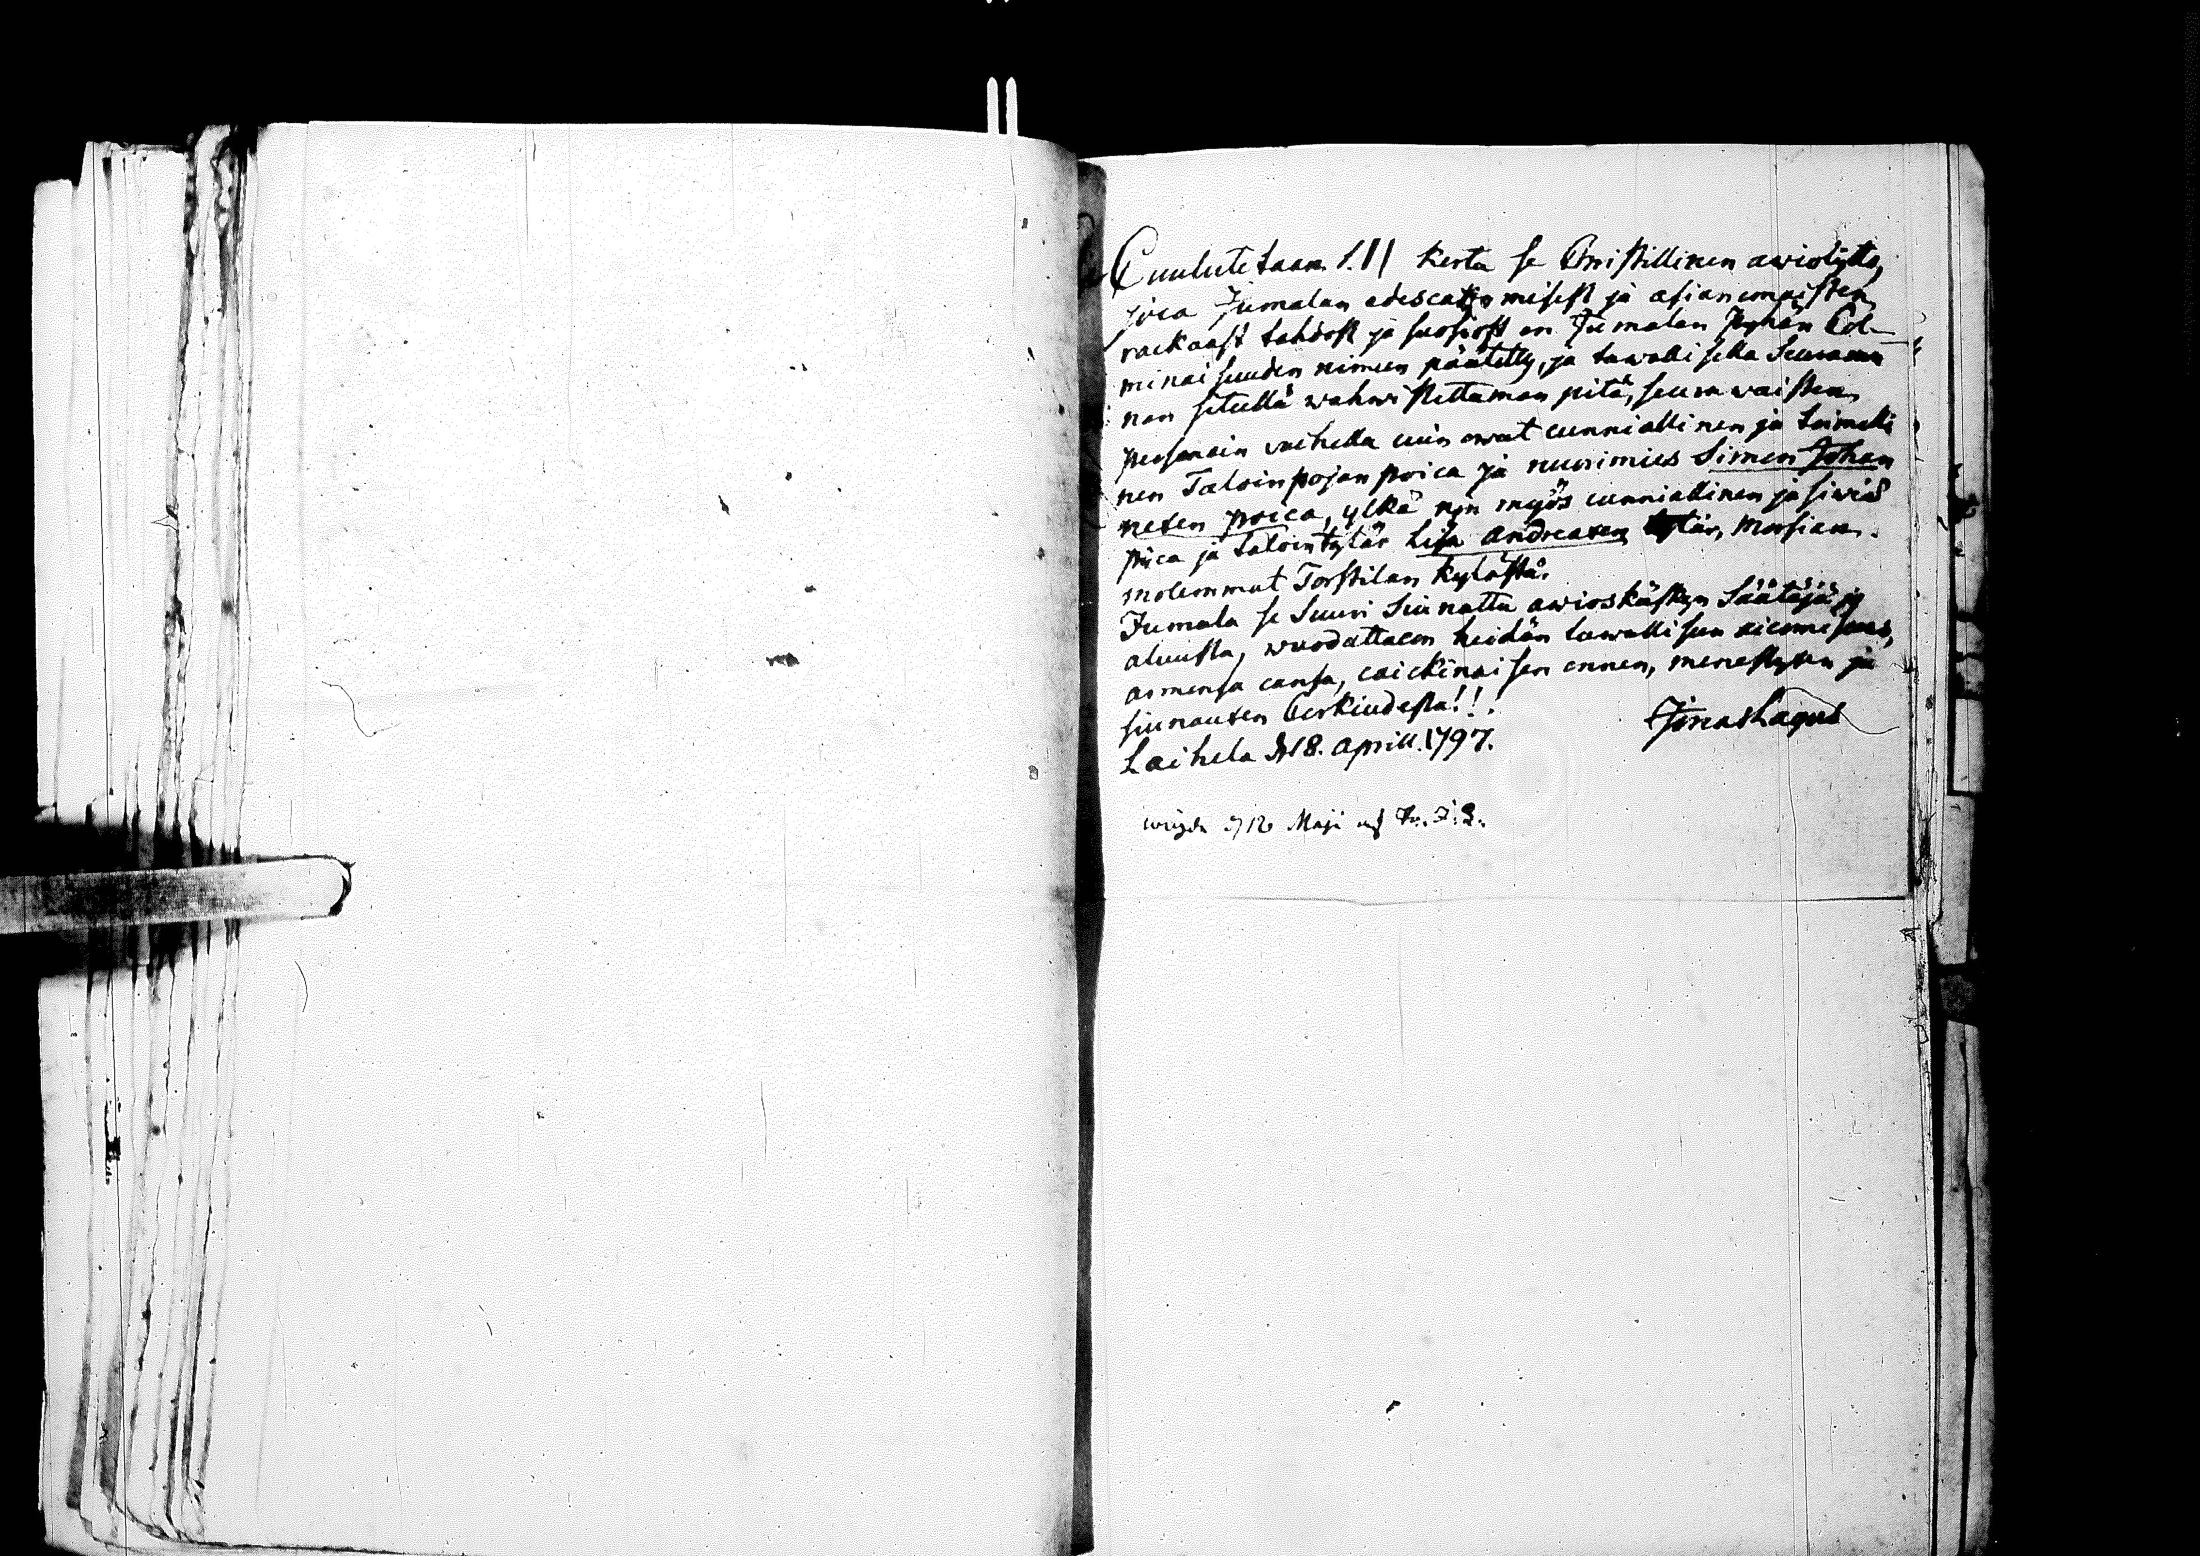 Cuulutetaan I. II kerta se Christillinen awioliitto,
joca Jumalan edescatzomisest ja asianomaisten
rackaast tahdost ja suosiost on Jumalan Pyhän Col-
minaisuuden nimeen päätetty, ja tawallisella Seuracun
nan setullä wahwistettaman pitä, seurawaisten
personain waihella cuin owat cunniallinen ja toimelli
nen Taloinpojan poica ja nuorimies Simon Johan
nexen poica, ylkä nijn myös cunniallinen ja siwiä
pijca ja taloin tytär Lisa Andreaxen tytär, Morsian.
molemmat Torstilan kyläsä.
Jumala se Suuri Siunattu awioskäskyn Säätäjä ja
aluusta, wuodattacon heidän tawallisen aicomisens,
armonsa cansa, caickinaisen onnen, menestyxen ja
siunauxen Corkiudesta!!!
Laihela d 18. Aprill. 1797. Jonas Lagus
wigde d 12 Maji af